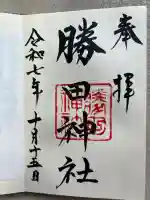 奉拝
勝田神社
令和七年十月十五日